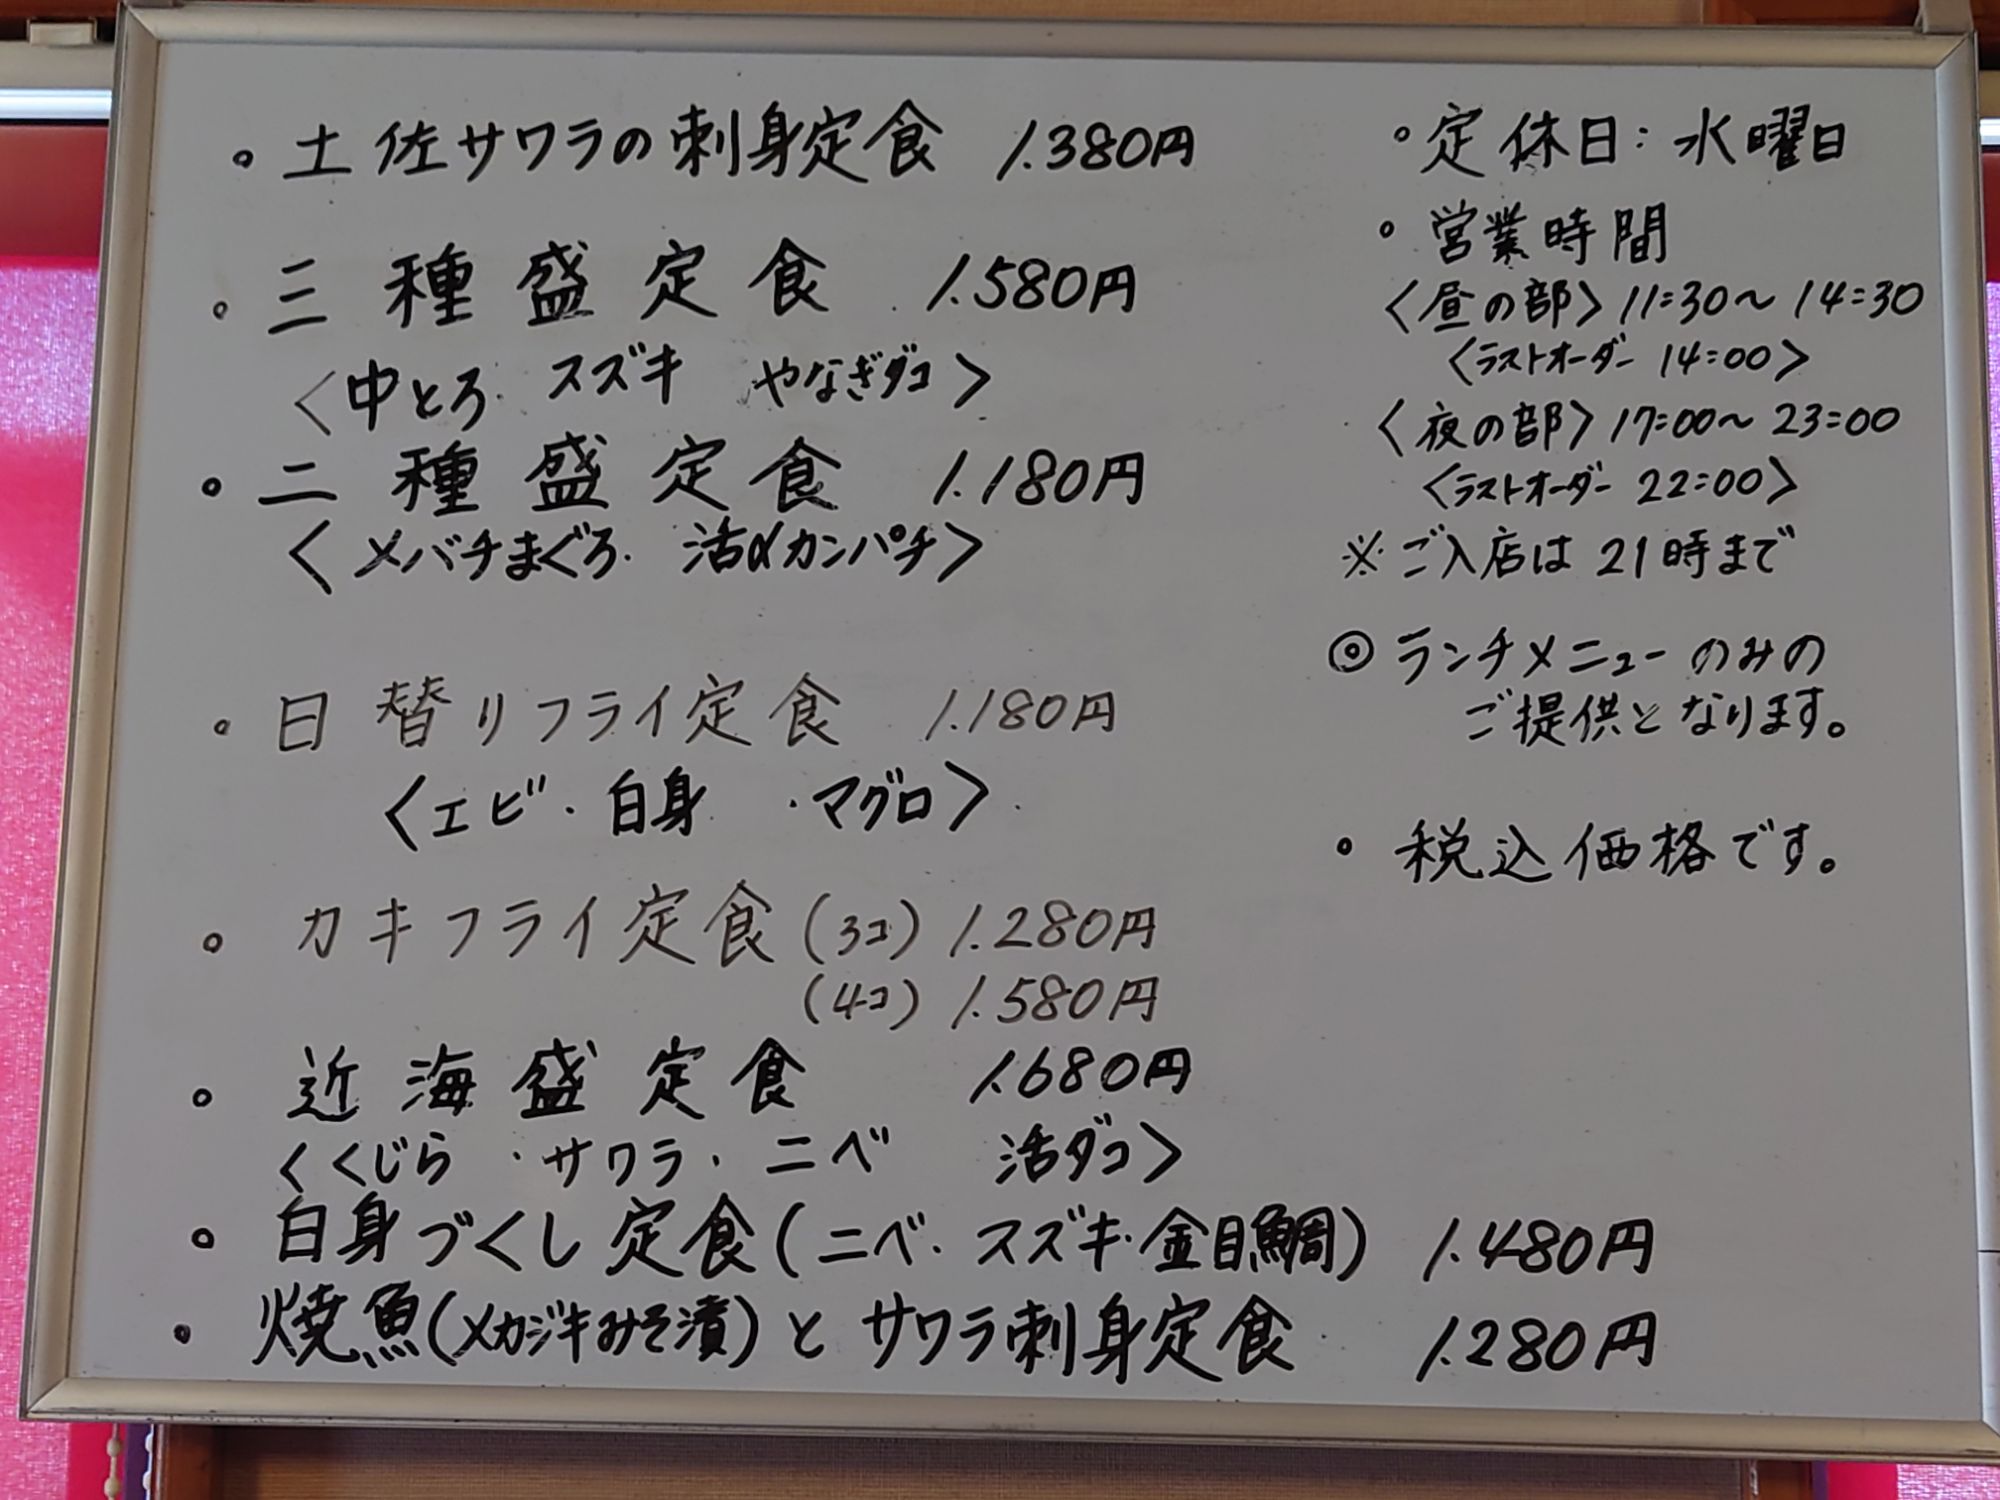 。土佐サワラの刺身定食 1.380円
。三種盛定食 1.580円
〈中とろ. スズキ やなぎダコ〉
。二種盛定食 1.180円
〈メバチまぐろ. 活〆カンパチ〉
。日替りフライ定食 1.180円
〈エビ・白身 ・マグロ〉
。カキフライ定食(3コ) 1.280円
(4コ) 1.580円
。近海盛定食 1.680円
〈くじら ・サワラ・ニベ 活ダコ〉
。白身づくし定食(ニベ・スズキ・金目鯛) 1.480円
。焼魚(メカジキみそ漬)とサワラ刺身定食 1.280円
。定休日:水曜日
。営業時間
〈昼の部〉11:30〜14:30
〈ラストオーダー 14:00〉
〈夜の部〉17:00〜23:00
〈ラストオーダー 22:00〉
※ご入店は21時まで
◎ランチメニューのみの
ご提供となります。
。税込価格です。